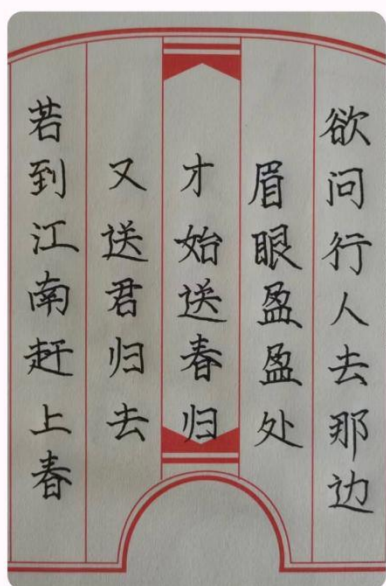 欲问行人去那边
眉眼盈盈处
才始送春归
又送君归去
若到江南赶上春